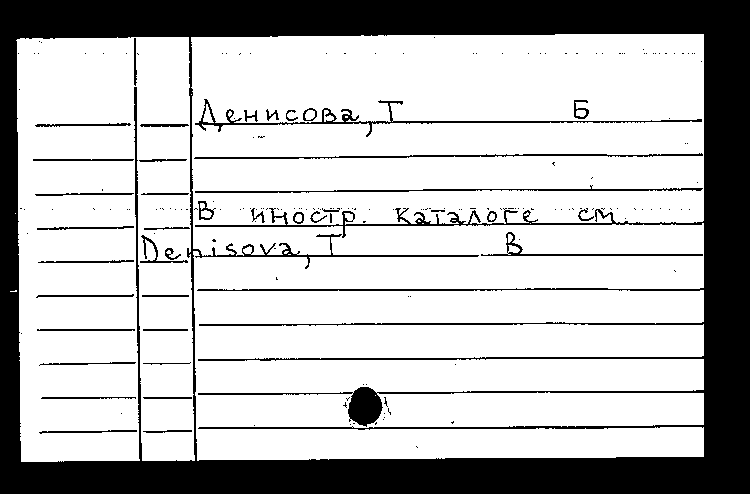 Денисова, Т Б
В иностр. каталоге см.
Denisova, T B